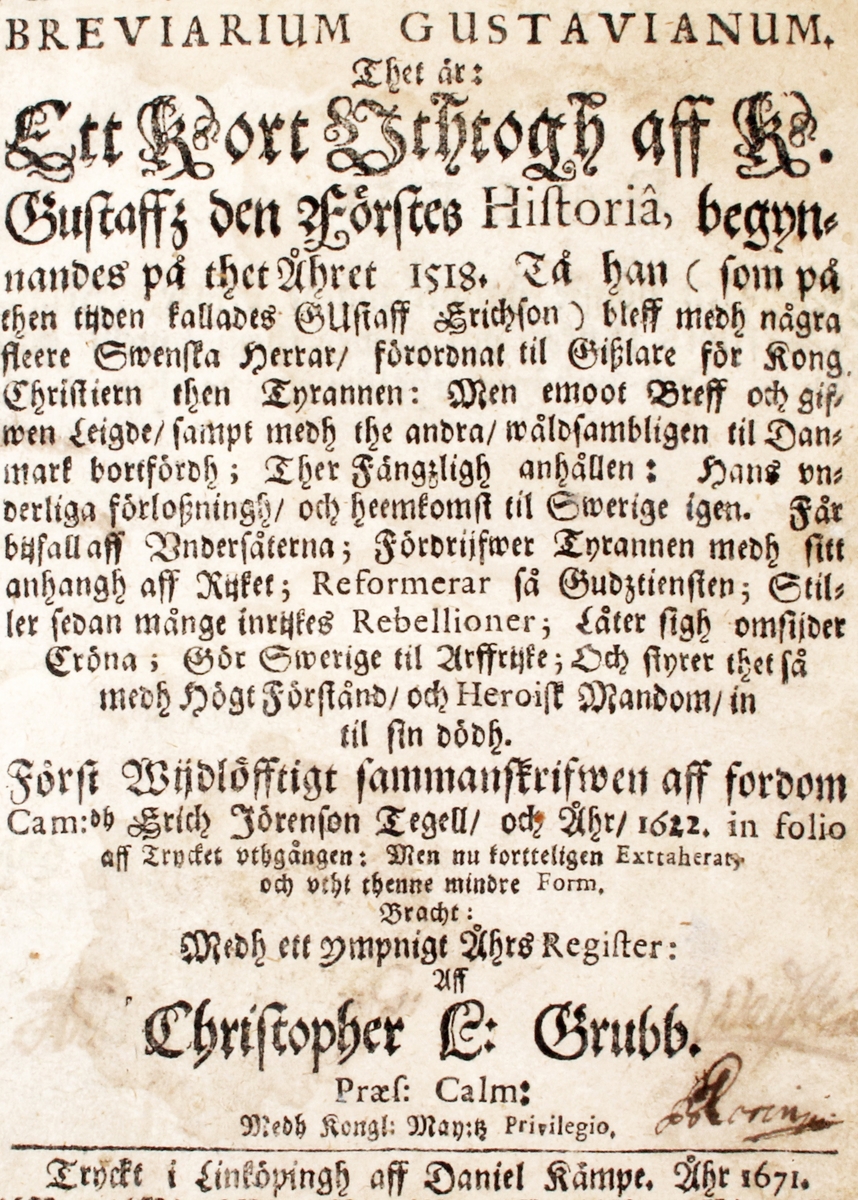 BREVIARIUM GUSTAVIANUM.
Thet är:
Ett Kort Vthtogh aff K.
Gustaffz den Förstes Historiâ, begyn-
nandes på thet Åhret 1518. Tå han (som på
then tijden kallades GUstaff Erichson) bleff medh några
fleere Swenska Herrar/ förordnat til Gißlare för Kong.
Christiern then Tyrannen: Men emoot Breff och gif-
wen Leigde/ sampt medh the andra/ wåldsambligen til Dan-
mark bortfördh; Ther Fängzligh anhållen: Hans vn-
derliga förloßningh/ och heemkomst til Swerige igen. Får
bijfall aff Vndersåterna; Fördrijfwer Tyrannen medh sitt
anhangh aff Rijket; Reformerar så Gudztiensten; Stil-
ler sedan månge inrijkes Rebellioner; Låter sigh omsijder
Cröna; Gör Swerige til Arffrijke; Och styrer thet så
medh Högt Förstånd/ och Heroisk Mandom/ in
til sin dödh.
Först Wijdlöfftigt sammanskrifwen aff fordom
Cam:dh Erich Jörenson Tegell/ och Åhr/ 1622. in folio
aff Trycket vthgången: Men nu kortteligen Exttaherat,
och vthi thenne mindre Form.
Bracht:
Medh ett ympnigt Åhrs Register:
Aff
Christopher L: Grubb.
Præs: Calm:
Medh Kongl: May:tz Privilegio.
Tryckt i Linköpingh aff Daniel Kämpe. Åhr 1671.